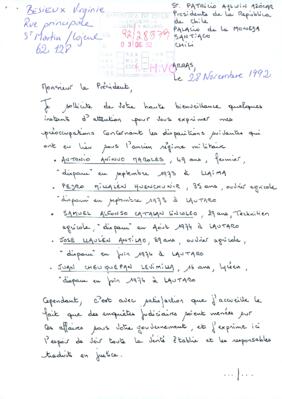 BESIEUX Virginie
Rue principale
St Martin / Cojeul
62 128
Sr. PATRICIO AYLWIN AZÓCAR
Presidente de la República
de Chile
PALACIO de la MONEDA
SANTIAGO
CHILI
92/28879
ARRAS,
Le 28 Novembre 1992
Monsieur le Président,
Je sollicite de votre haute bienveillance quelques
instants d'attention pour vous exprimer mes
préoccupations concernant les disparitions suivantes qui
ont eu lieu sous l'ancien régime militaire
• ANTONIO ANINAO 49 ans, fermier,
"disparu" en septembre 1973 à LLAIMA
• PEDRO MILLALEN HUENCHUNIR, 35 ans, ouvrier agricole
"disparu" en septembre 1973 à LAUTARO
• SAMUEL ALFONSO CATALAN LINCOLEO, 29 ans, Technicien
agricole, "disparu" en Août 1974 à LAUTARO
• JOSE LLAULEN ANTILAO, 39 ans, ouvrier agricole,
"disparu" en juin 1974 à LAUTARO
• JUAN CHEUQUEPAN LEVIMILLA, 16 ans, lycéen,
"disparu" en juin 1974 à LAUTARO
Cependant, c'est avec satisfaction que j'accueille le
fait que des enquêtes judiciaires soient menées sur
ces affaires sous votre gouvernement, et j'exprime ici
l'espoir de voir toute la vérité établie et les responsables
traduits en justice.
.../...